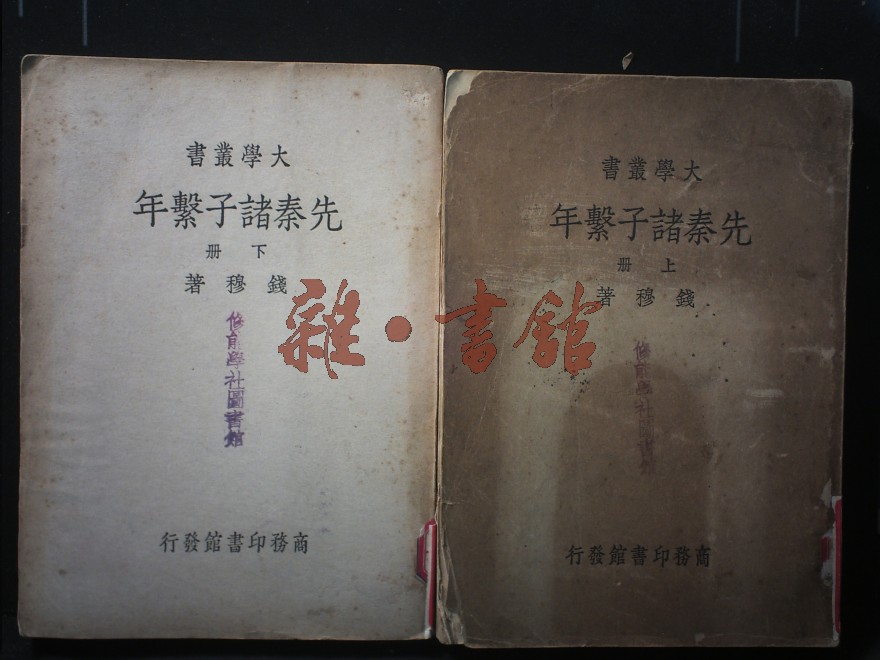 大學叢書
先秦諸子繫年
上冊
錢穆著
修能學社圖書館
商務印書館發行
大學叢書
先秦諸子繫年
下冊
錢穆著
修能學社圖書館
商務印書館發行
雜·書館